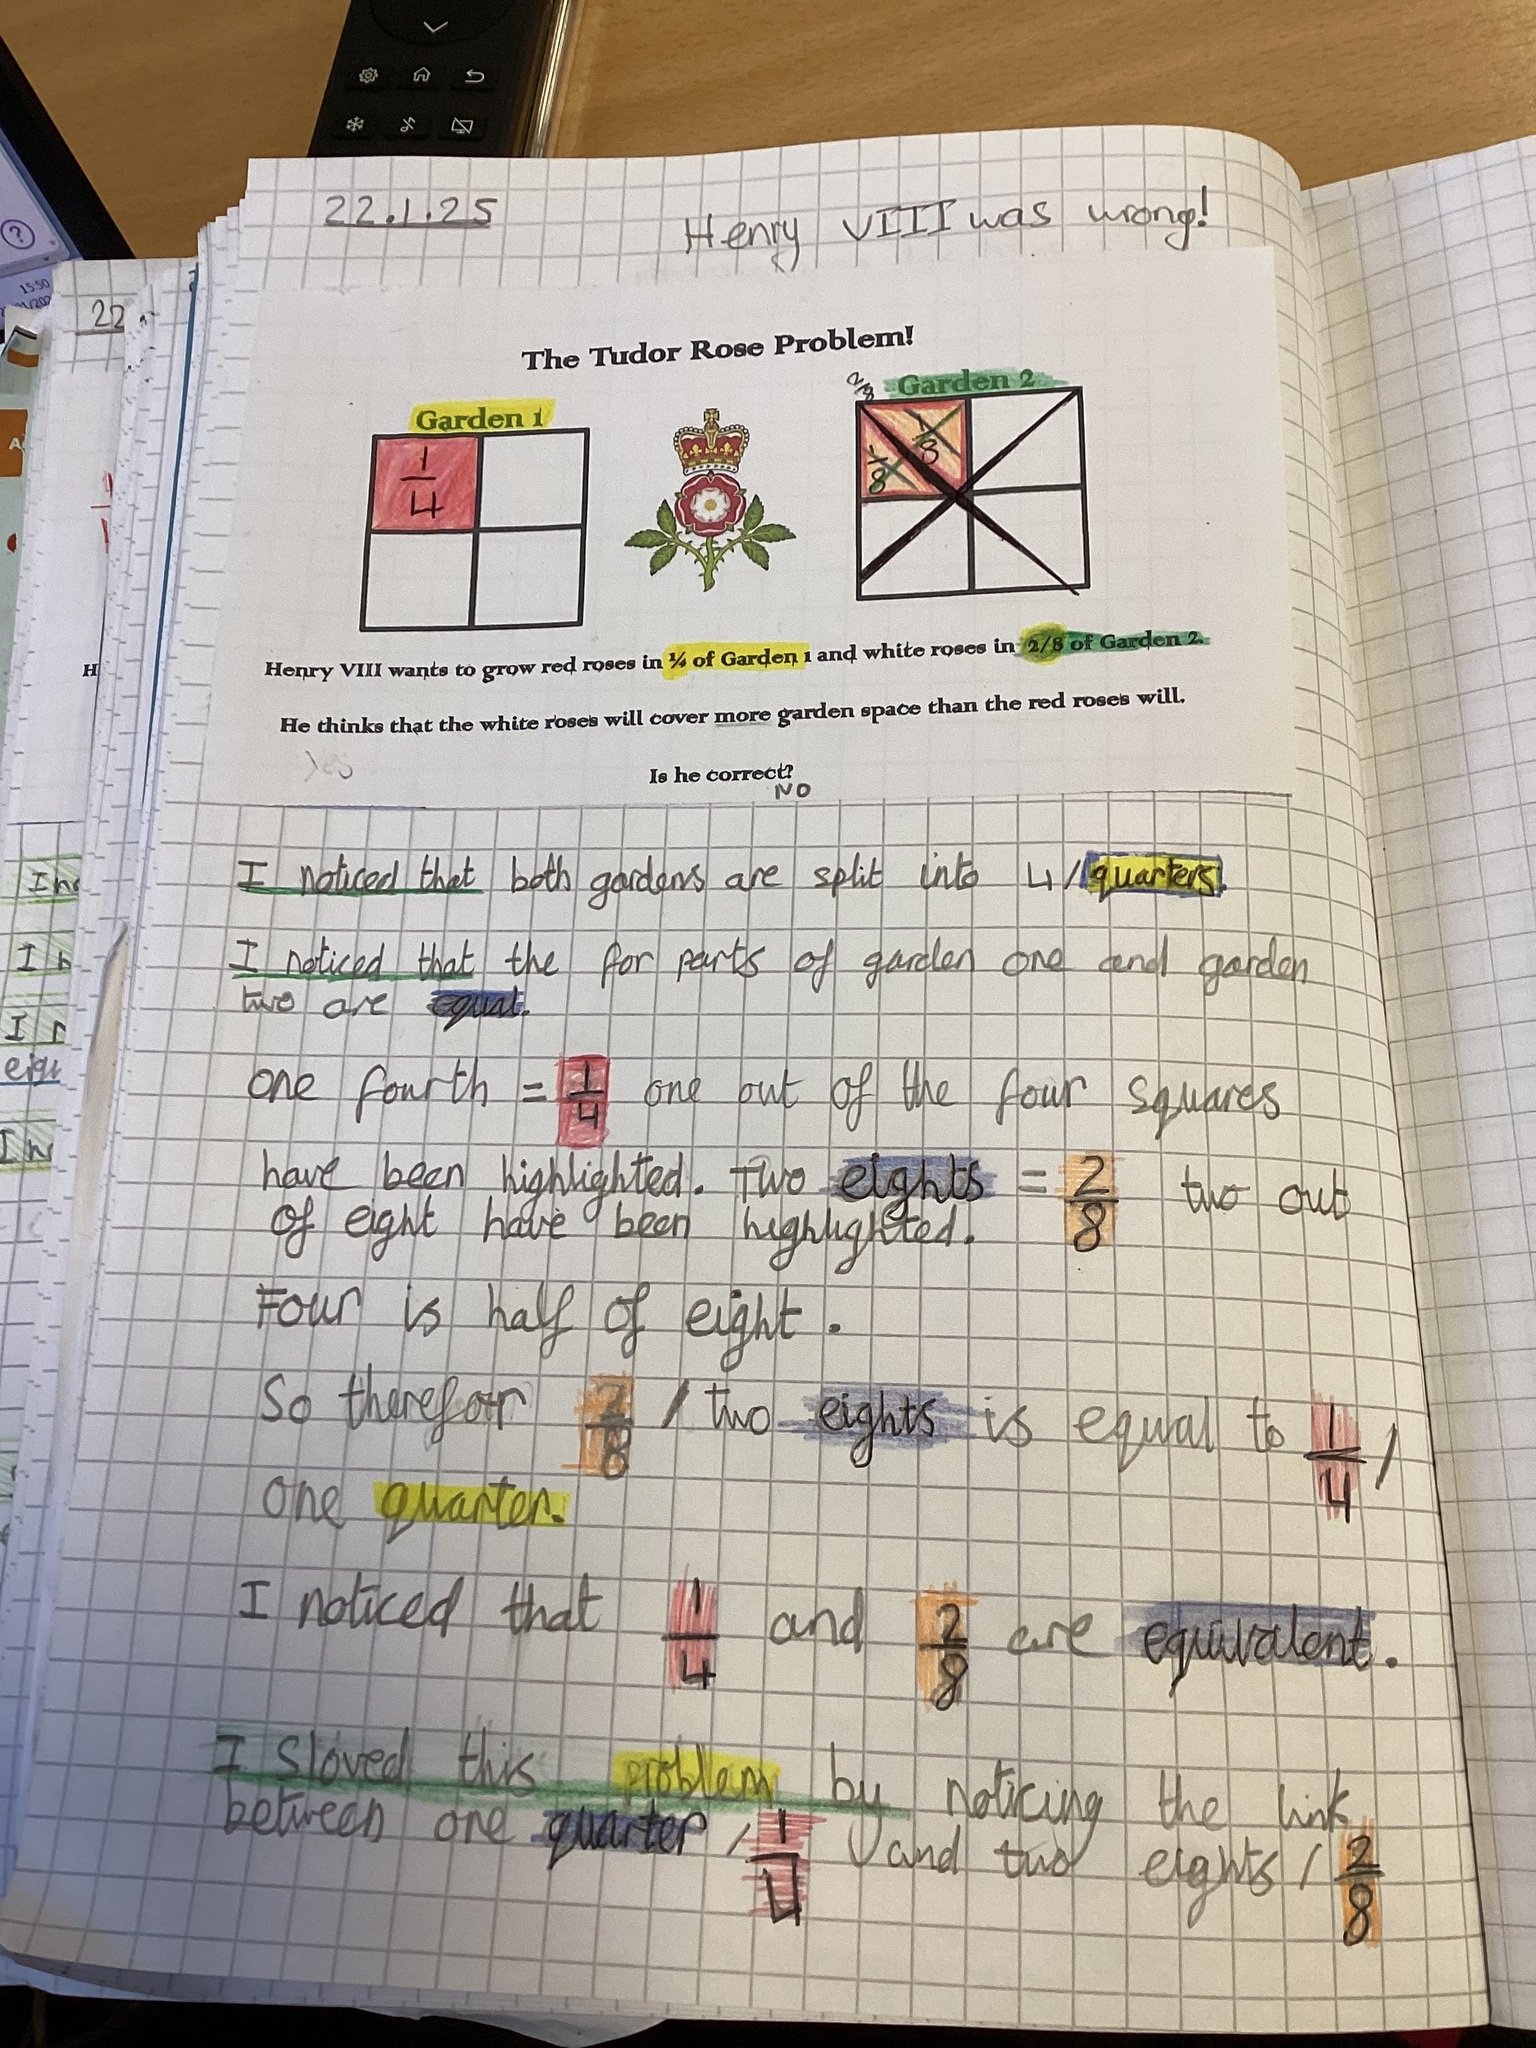 22.1.25
Henry VIII was wrong!
The Tudor Rose Problem!
Garden 1
2/8
Garden 2
1/4
1/8
1/8
Henry VIII wants to grow red roses in ¼ of Garden 1 and white roses in 2/8 of Garden 2.
He thinks that the white roses will cover more garden space than the red roses will.
Yes
Is he correct?
NO
I noticed that both gardens are split into 4/quarters.
I noticed that the for parts of garden one and garden
two are equal.
one fourth = 1/4 one out of the four squares
have been highlighted. Two eights = 2/8 two out
of eight have been highlighted.
Four is half of eight.
So therefor 2/8 / two eights is equal to 1/4 /
one quarter.
I noticed that 1/4 and 2/8 are equivalent.
I sloved this problem by noticing the link
between one quarter / 1/4 and two eights / 2/8
22
15:50